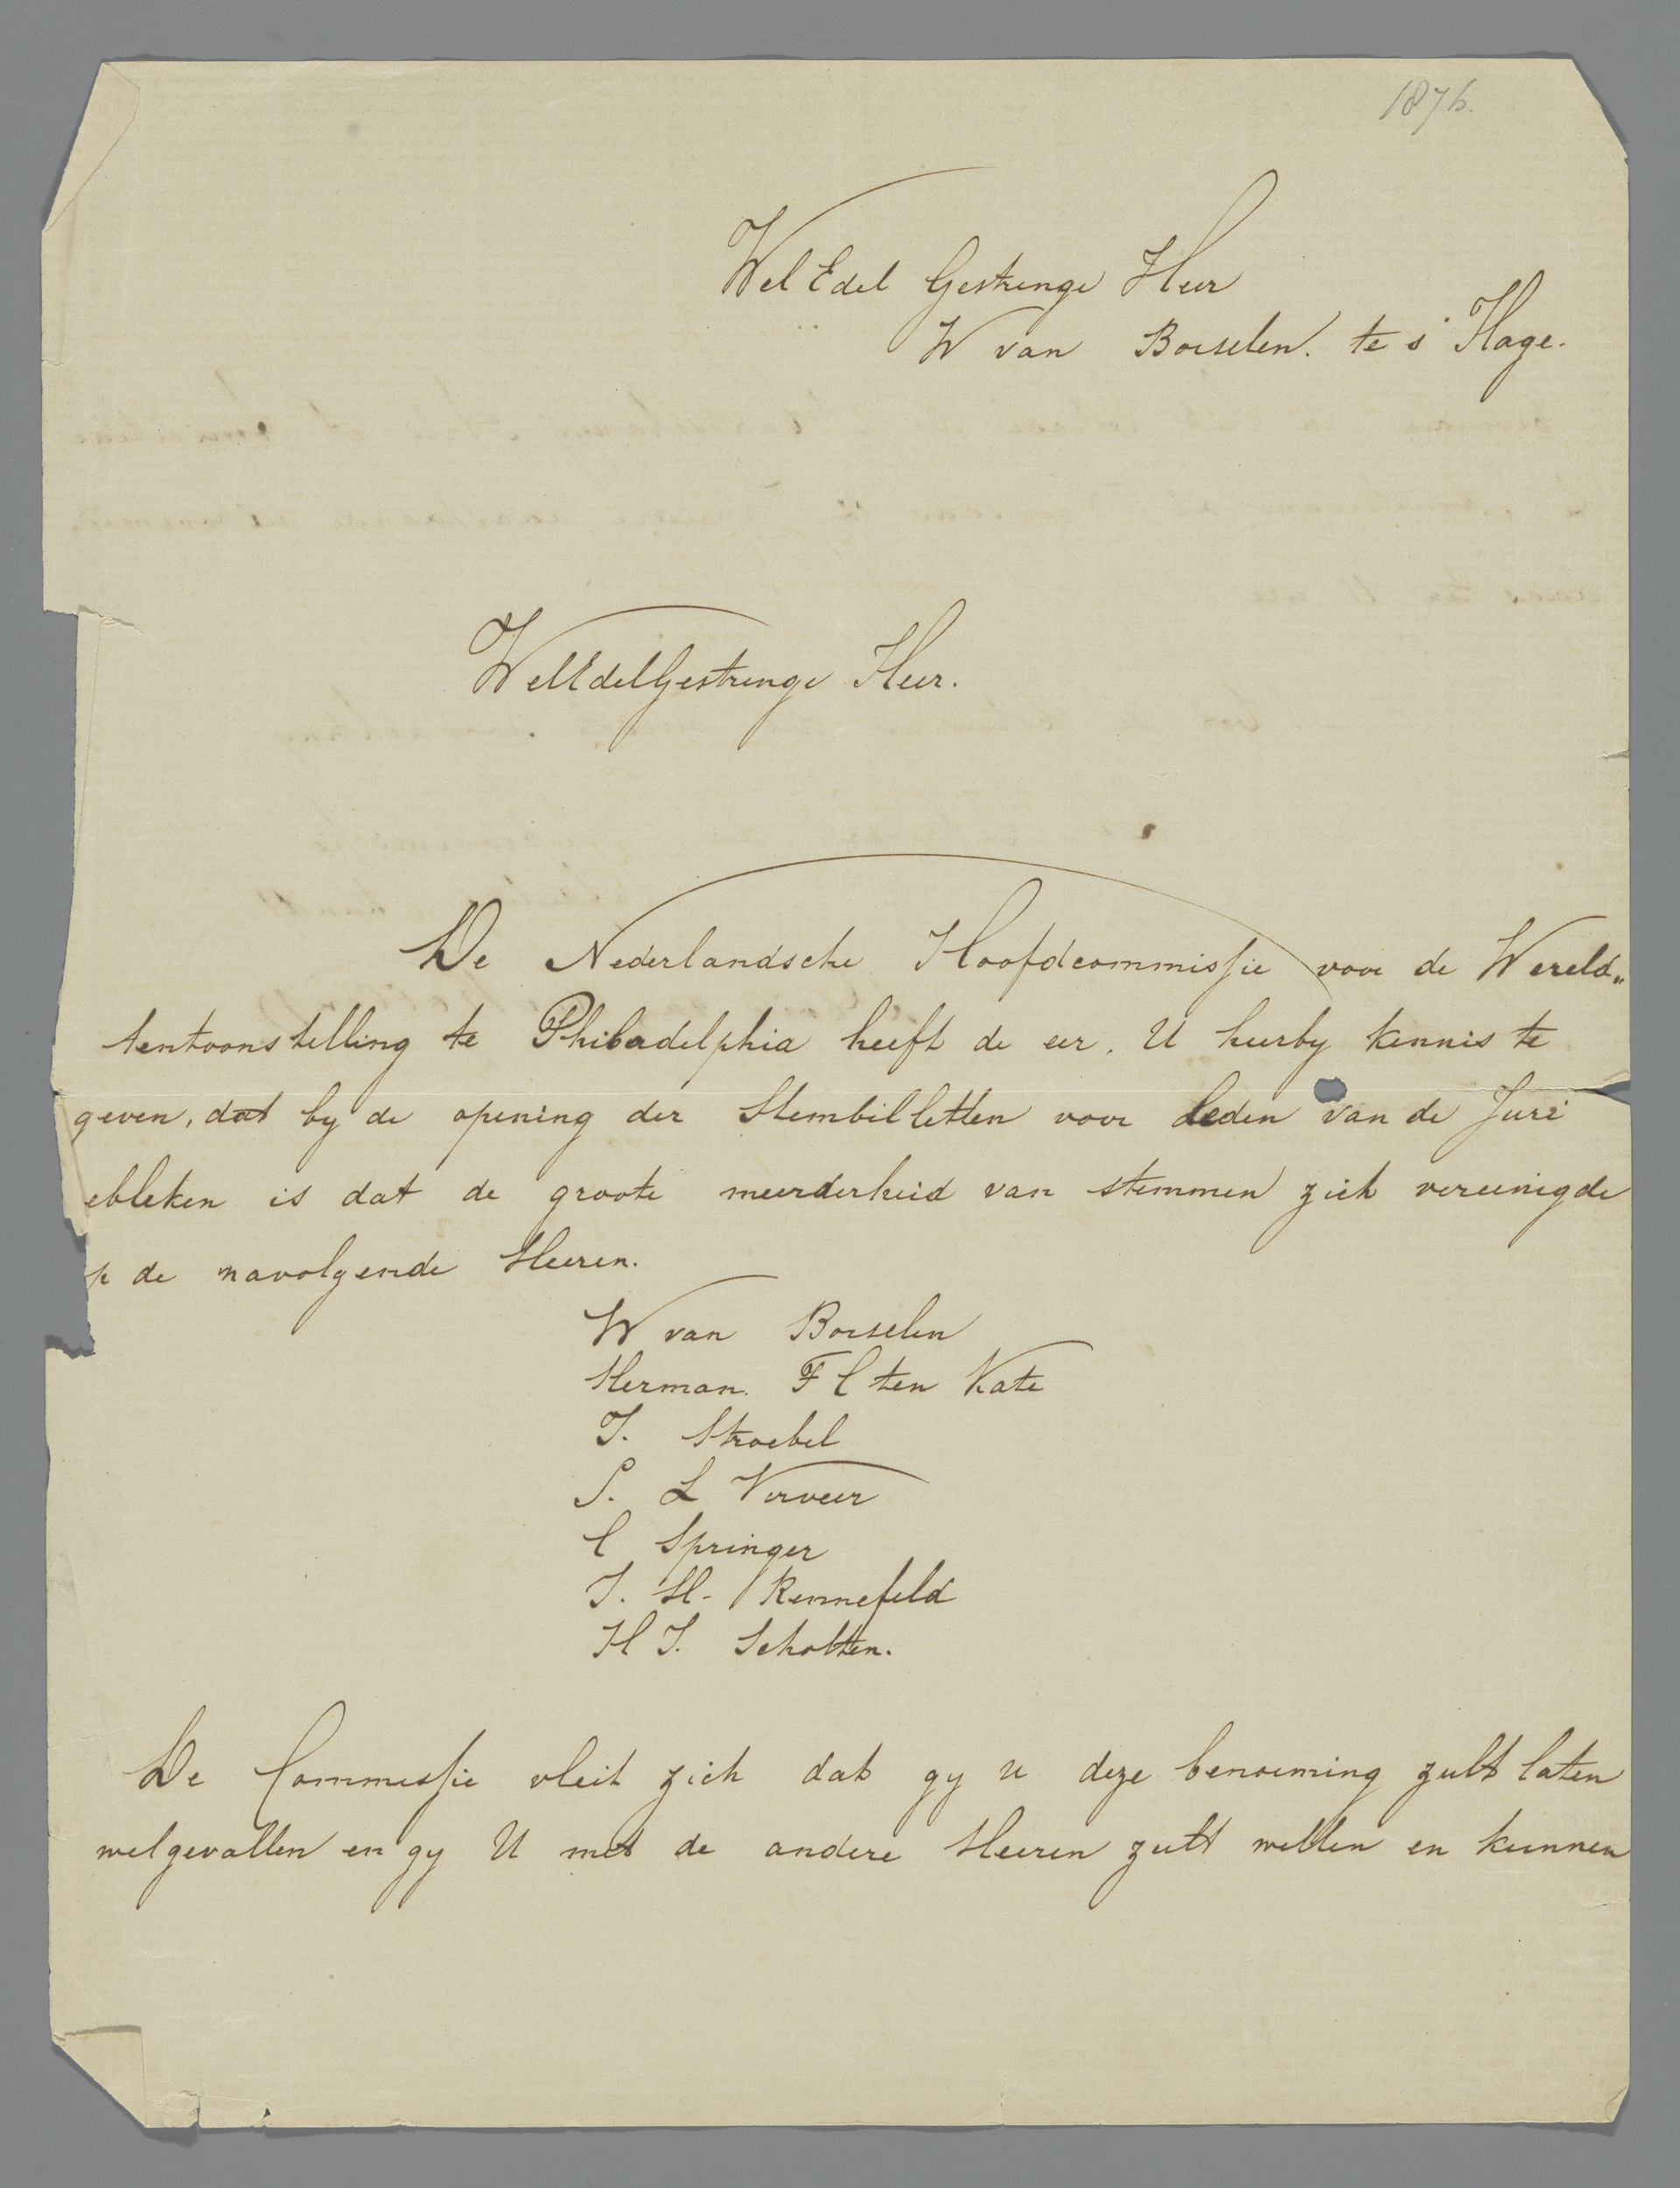 1876.
WelEdel Gestrenge Heer
W van Borselen. te s' Hage.
WelEdelGestrenge Heer.
De Nederlandsche Hoofdcommissie voor de Wereld„
tentoonstelling te Philadelphia heeft de eer, U hierby kennis te
geven, dat by de opening der Stembilletten voor Leden van de Juri
ebleken is dat de groote meerderheid van stemmen zich vereenigde
p de navolgende Heeren.
W van Borselen
Herman. F C ten Kate
J. Stroebel
S. L Verveer
C Springer
J. H. Rennefeld
H J. Scholten.
De Commissie vleit zich dat gy u deze benoeming zult laten
welgevallen en gy U met de andere Heeren zult willen en kunnen